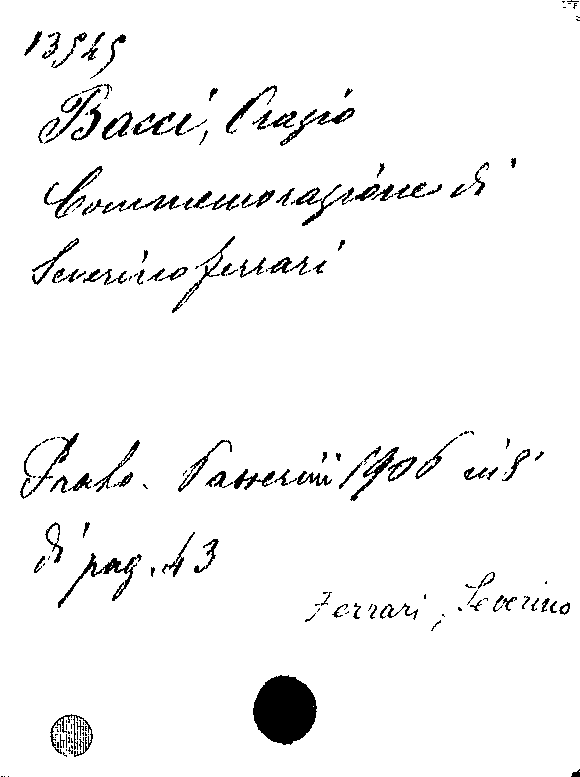 13545
Bacci, Orazio
Commemorazione di
Severino Ferrari
Prato. Passerini 1906 in 8°
di pag. 43
Ferrari, Severino